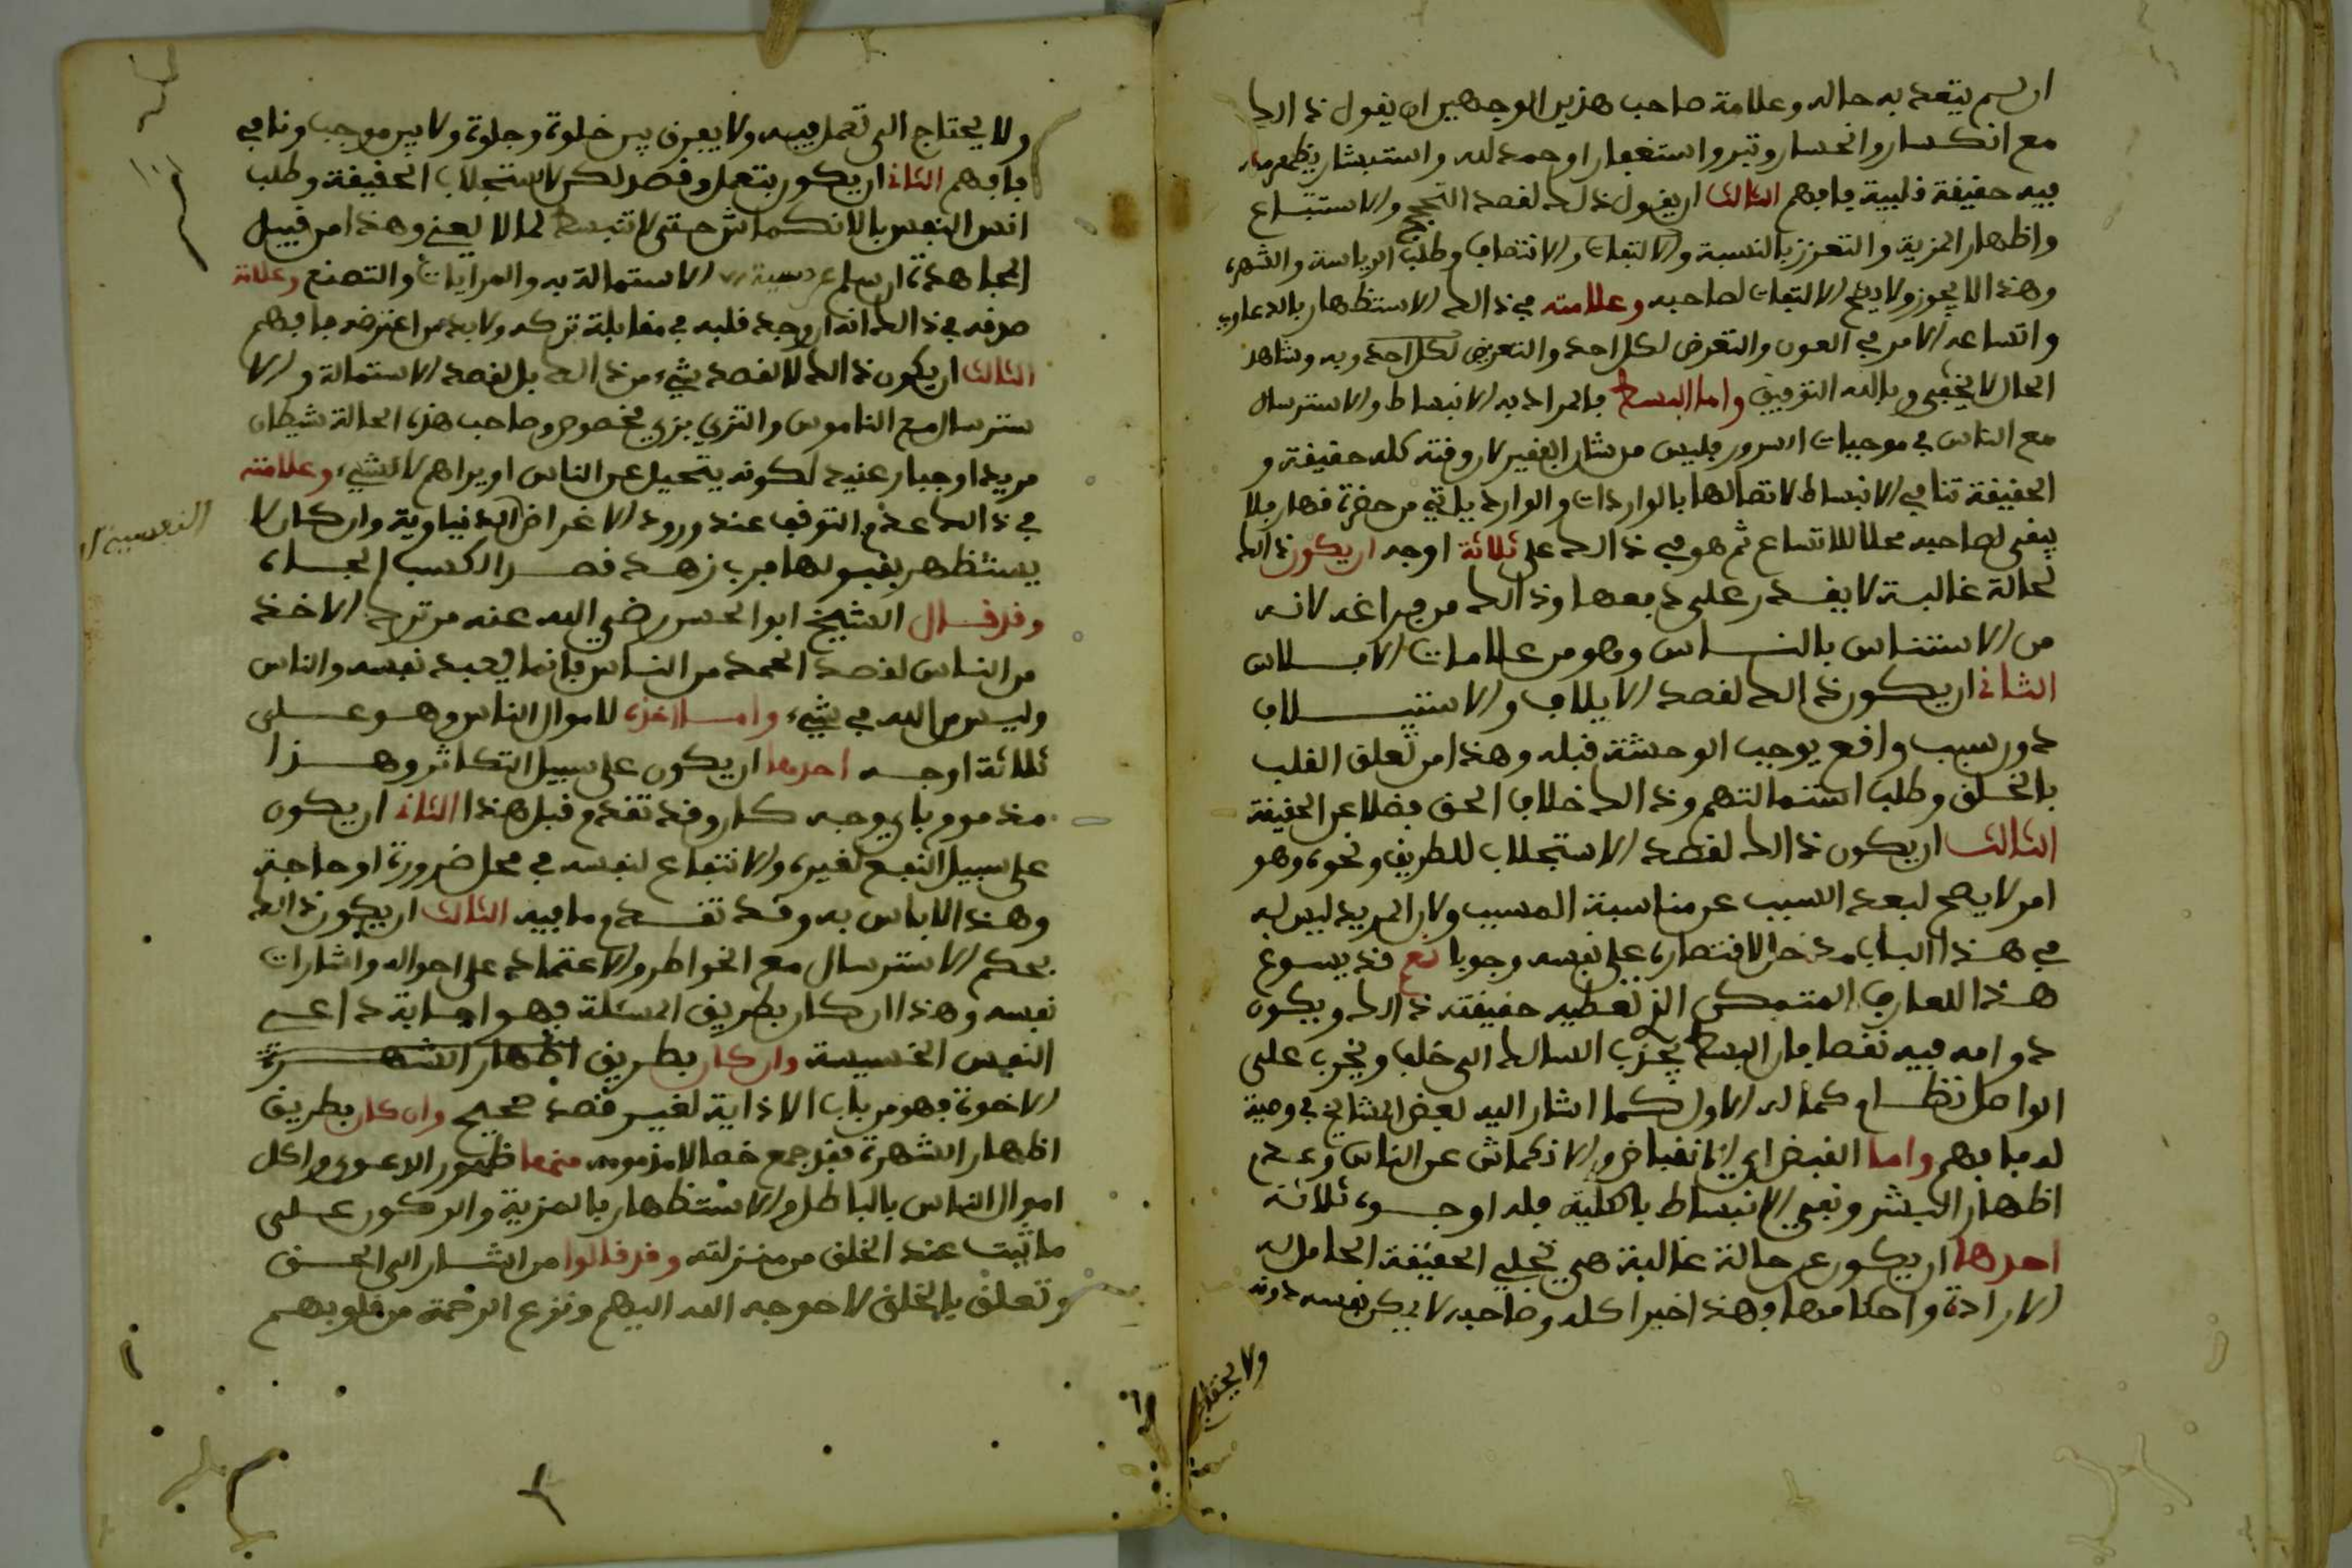 ان لم يتعد به حاله وعلامة صاحب هذين الوجهين ان يقول ذالك
مع انكسار وانحسار وتبر واستغفار او حمد لله واستبشار يظهر
فيه حقيقة قلبية فافهم الثالث ان يقول ذلك لقصد التبجح والاستتباع
واظهار المزية والتعزز بالنسبة والالتفات والانتصاف وطلب الرياسة والشهرة
وهذا لا يجوز ولا يصح الالتفات لصاحبه وعلامته في ذالك الاستظهار بالدعاوي
واتساعه الامر في العون والتعرض لكل احد والتعريض لكل احد وبه وشاهد
الحال لا يخفى وبالله التوفيق واما البسط فالمراد به الانبساط والاسترسال
مع الناس في موجبات السرور فليس من شان الفقير لان وقته كله حقيقة و
الحقيقة تنافي الانبساط لاتصالها بالواردات والوارد ياتي من حضرة قهار فلا
يبقى لصاحبه محلا للاتساع ثم هو في ذالك على ثلاثة اوجه ان يكون ذالك
لحالة غالبة لا يقدر على دفعها وذالك من فراغه لانه
من الاستئناس بالناس وهو من علامات الافلاس
الثاني ان يكون ذالك لقصد الايلاف والاستيلاف
دون سبب واقع يوجب الوحشة قبله وهذا من تعلق القلب
بالخلق وطلب استمالتهم وذالك خلاف الحق فضلا عن الحقيقة
الثالث ان يكون ذالك لقصد الاستجلاب للطريق ونحوه وهو
امر لا يصح لبعد السبب عن مناسبة المسبب ولان المريد ليس له
في هذا الباب مدخل لاقتصاره على نفسه وجوبا نعم قد يسوغ
هذا للعارف المتمكن الذي تعطيه حقيقته ذالك ويكون
دوامه فيه نقصا فان البسط يجذب السالك الى خلف ويخرب على
الواصل نظام كماله الاول كما اشار اليه بعض المشايخ في وصية
له فافهم واما القبض اي الانقباض والانكماش عن الناس وعدم
اظهار البشر ونفي الانبساط بالكلية فله اوجه ثلاثة
احدها ان يكون عن حالة غالبة هي تجلي الحقيقة الحامل له
الارادة واحكامها وهذا خير اكله وصاحبه لا يمكن نفسه دونه
ولا يحتاج
ولا يحتاج الى تعمل فيه ولا يفرق بين خلوة وجلوة ولا بين موجب ونافي
فافهم الثاني ان يكون بتعمل وقصد لكن لاستجلاب الحقيقة وطلب
انس النفس بالانكماش حتى لا تنبسط لما لا يعني وهذا من قبيل
المجاهدة ان سلم عن الاستمالة به والمرايات والتصنع وعلامة
صدقه في ذالك انه ان وجد قلبه في مقابلة تركه ولا بد من اعترضه فافهم
الثالث ان يكون ذالك لا لقصد شيء من ذالك بل لقصد الاستمالة والا
سترسال مع الناموس والتزي بزي مخصوص وصاحب هذه الحالة شيطان
مريد او جبار عنيد لكونه يتحيل عن الناس او يراهم لا لشيء وعلامته
في ذالك عدم التوقف عند ورود الاغراض الدنياوية وان كان لا
النفسية
يستظهر بقبولها فرب زهد قصد الكسب الجاه
وقد قال الشيخ ابو الحسن رضي الله عنه من ترك الاخذ
من الناس لقصد الحمد من الناس فانما يعبد نفسه والناس
وليس من الله في شيء واما اخذه لاموال الناس وهو على
ثلاثة اوجه احدها ان يكون على سبيل التكاثر وهذا
مذموم باي وجه كان وقد تقدم قبل هذا الثاني ان يكون
على سبيل النفع لغيره والانتفاع لنفسه في محل ضرورة او حاجة
وهذا لا باس به وقد تقدم ما فيه الثالث ان يكون ذالك
بحكم الاسترسال مع الخواطر والاعتماد على احواله واشارات
نفسه وهذا ان كان بطريق المسئلة فهو اجابة داعي
النفس الخسيسة وان كان بطريق اظهار الشهرة
الاخوة فهو من باب الاذاية لغير قصد صحيح وان كان بطريق
اظهار الشهرة فقد جمع خصالا مذمومه منها ظهور الدعوى واكل
اموال الناس بالباطل والاستظهار بالمزية والركون على
ما ثبت عند الخلق من منزلته وقد قالوا من اشار الى الحق
وتعلق بالخلق لاحوجه الله اليهم ونزع الرحمة من قلوبهم